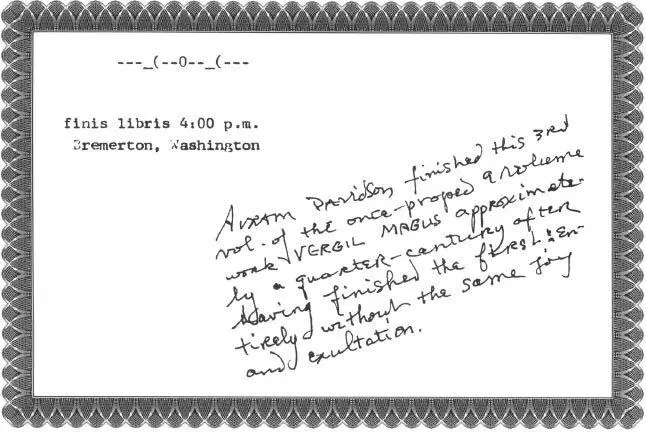 ---_(--O--_(---
finis libris 4:00 p.m.
Bremerton, Washington
Avram Davidson finished this 3rd
vol. of the once-proped 9 volume
work VERGIL MAGUS approximate-
ly a quarter-century after
having finished the first: en-
tirely without the same joy
and exultation.